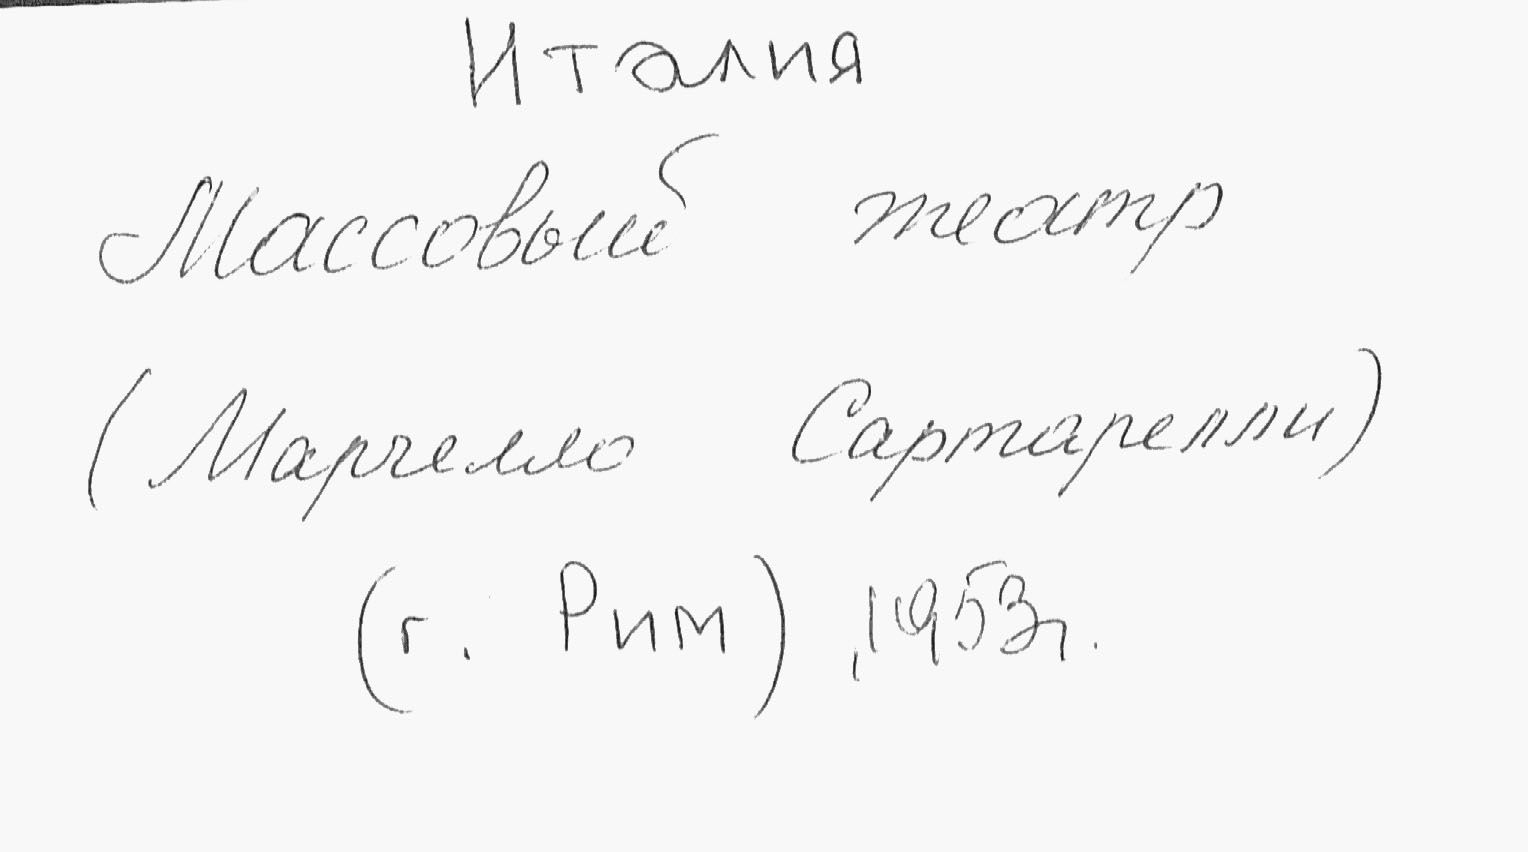 Италия
Массовый театр
(Марчелло Сартарелли)
(г. Рим), 1953г.